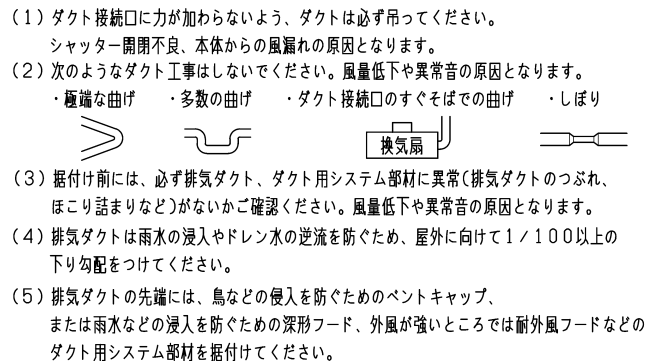 (1)ダクト接続口に力が加わらないよう、ダクトは必ず吊ってください。
シャッター開閉不良、本体からの風漏れの原因となります。
(2)次のようなダクト工事はしないでください。風量低下や異常音の原因となります。
・極端な曲げ ・多数の曲げ ・ダクト接続口のすぐそばでの曲げ ・しぼり
換気扇
(3)据付け前には、必ず排気ダクト、ダクト用システム部材に異常(排気ダクトのつぶれ、
ほこり詰まりなど)がないかご確認ください。風量低下や異常音の原因となります。
(4)排気ダクトは雨水の浸入やドレン水の逆流を防ぐため、屋外に向けて1/100以上の
下り勾配をつけてください。
(5)排気ダクトの先端には、鳥などの侵入を防ぐためのベントキャップ、
または雨水などの浸入を防ぐための深形フード、外風が強いところでは耐外風フードなどの
ダクト用システム部材を据付けてください。